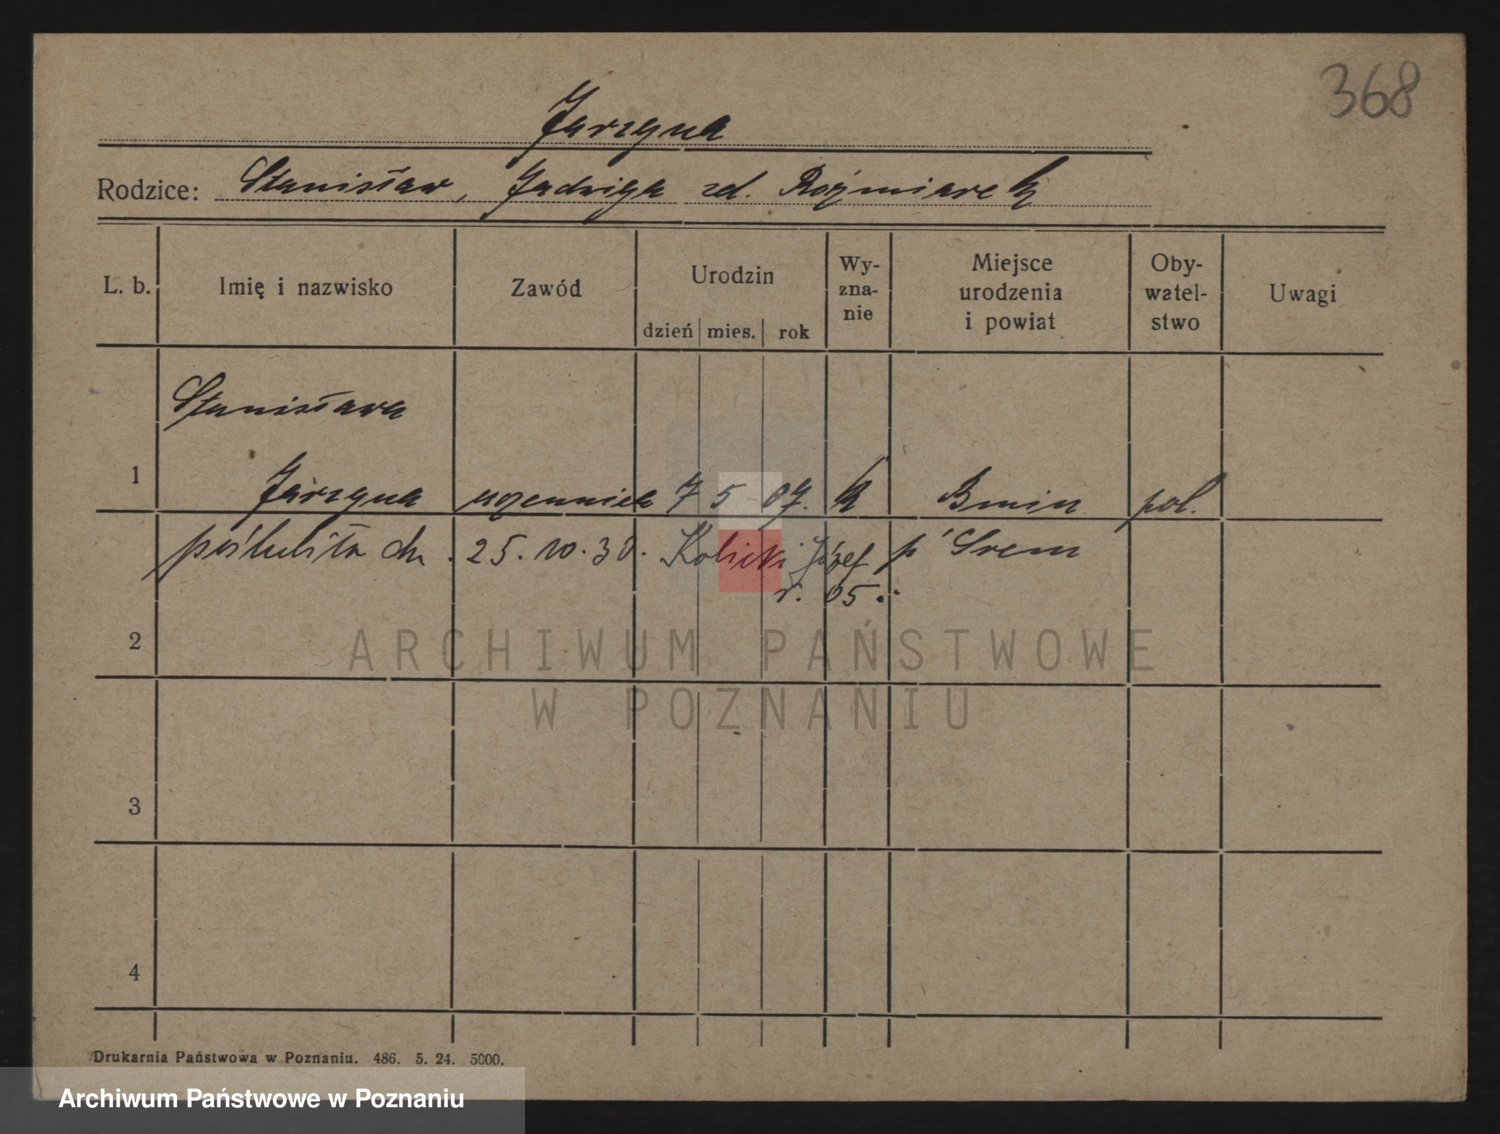 368
Jarzyna
Rodzice: Stanisław, Jadwiga zd. Rozmiarek
L. b. Imię i nazwisko Zawód Urodzin Wy- Miejsce Oby- Uwagi
zna- urodzenia watel-
dzień mies. rok nie i powiat stwo
Stanisława
1 Jarzyna uczennica 7 5 07. k Bnin pol.
poślubiła dn. 25.10.30. Kolicki Józef p Śrem
r. 05.
2
ARCHIWUM PAŃSTWOWE
W POZNANIU
3
4
Drukarnia Państwowa w Poznaniu. 486. 5. 24. 5000.
Archiwum Państwowe w Poznaniu